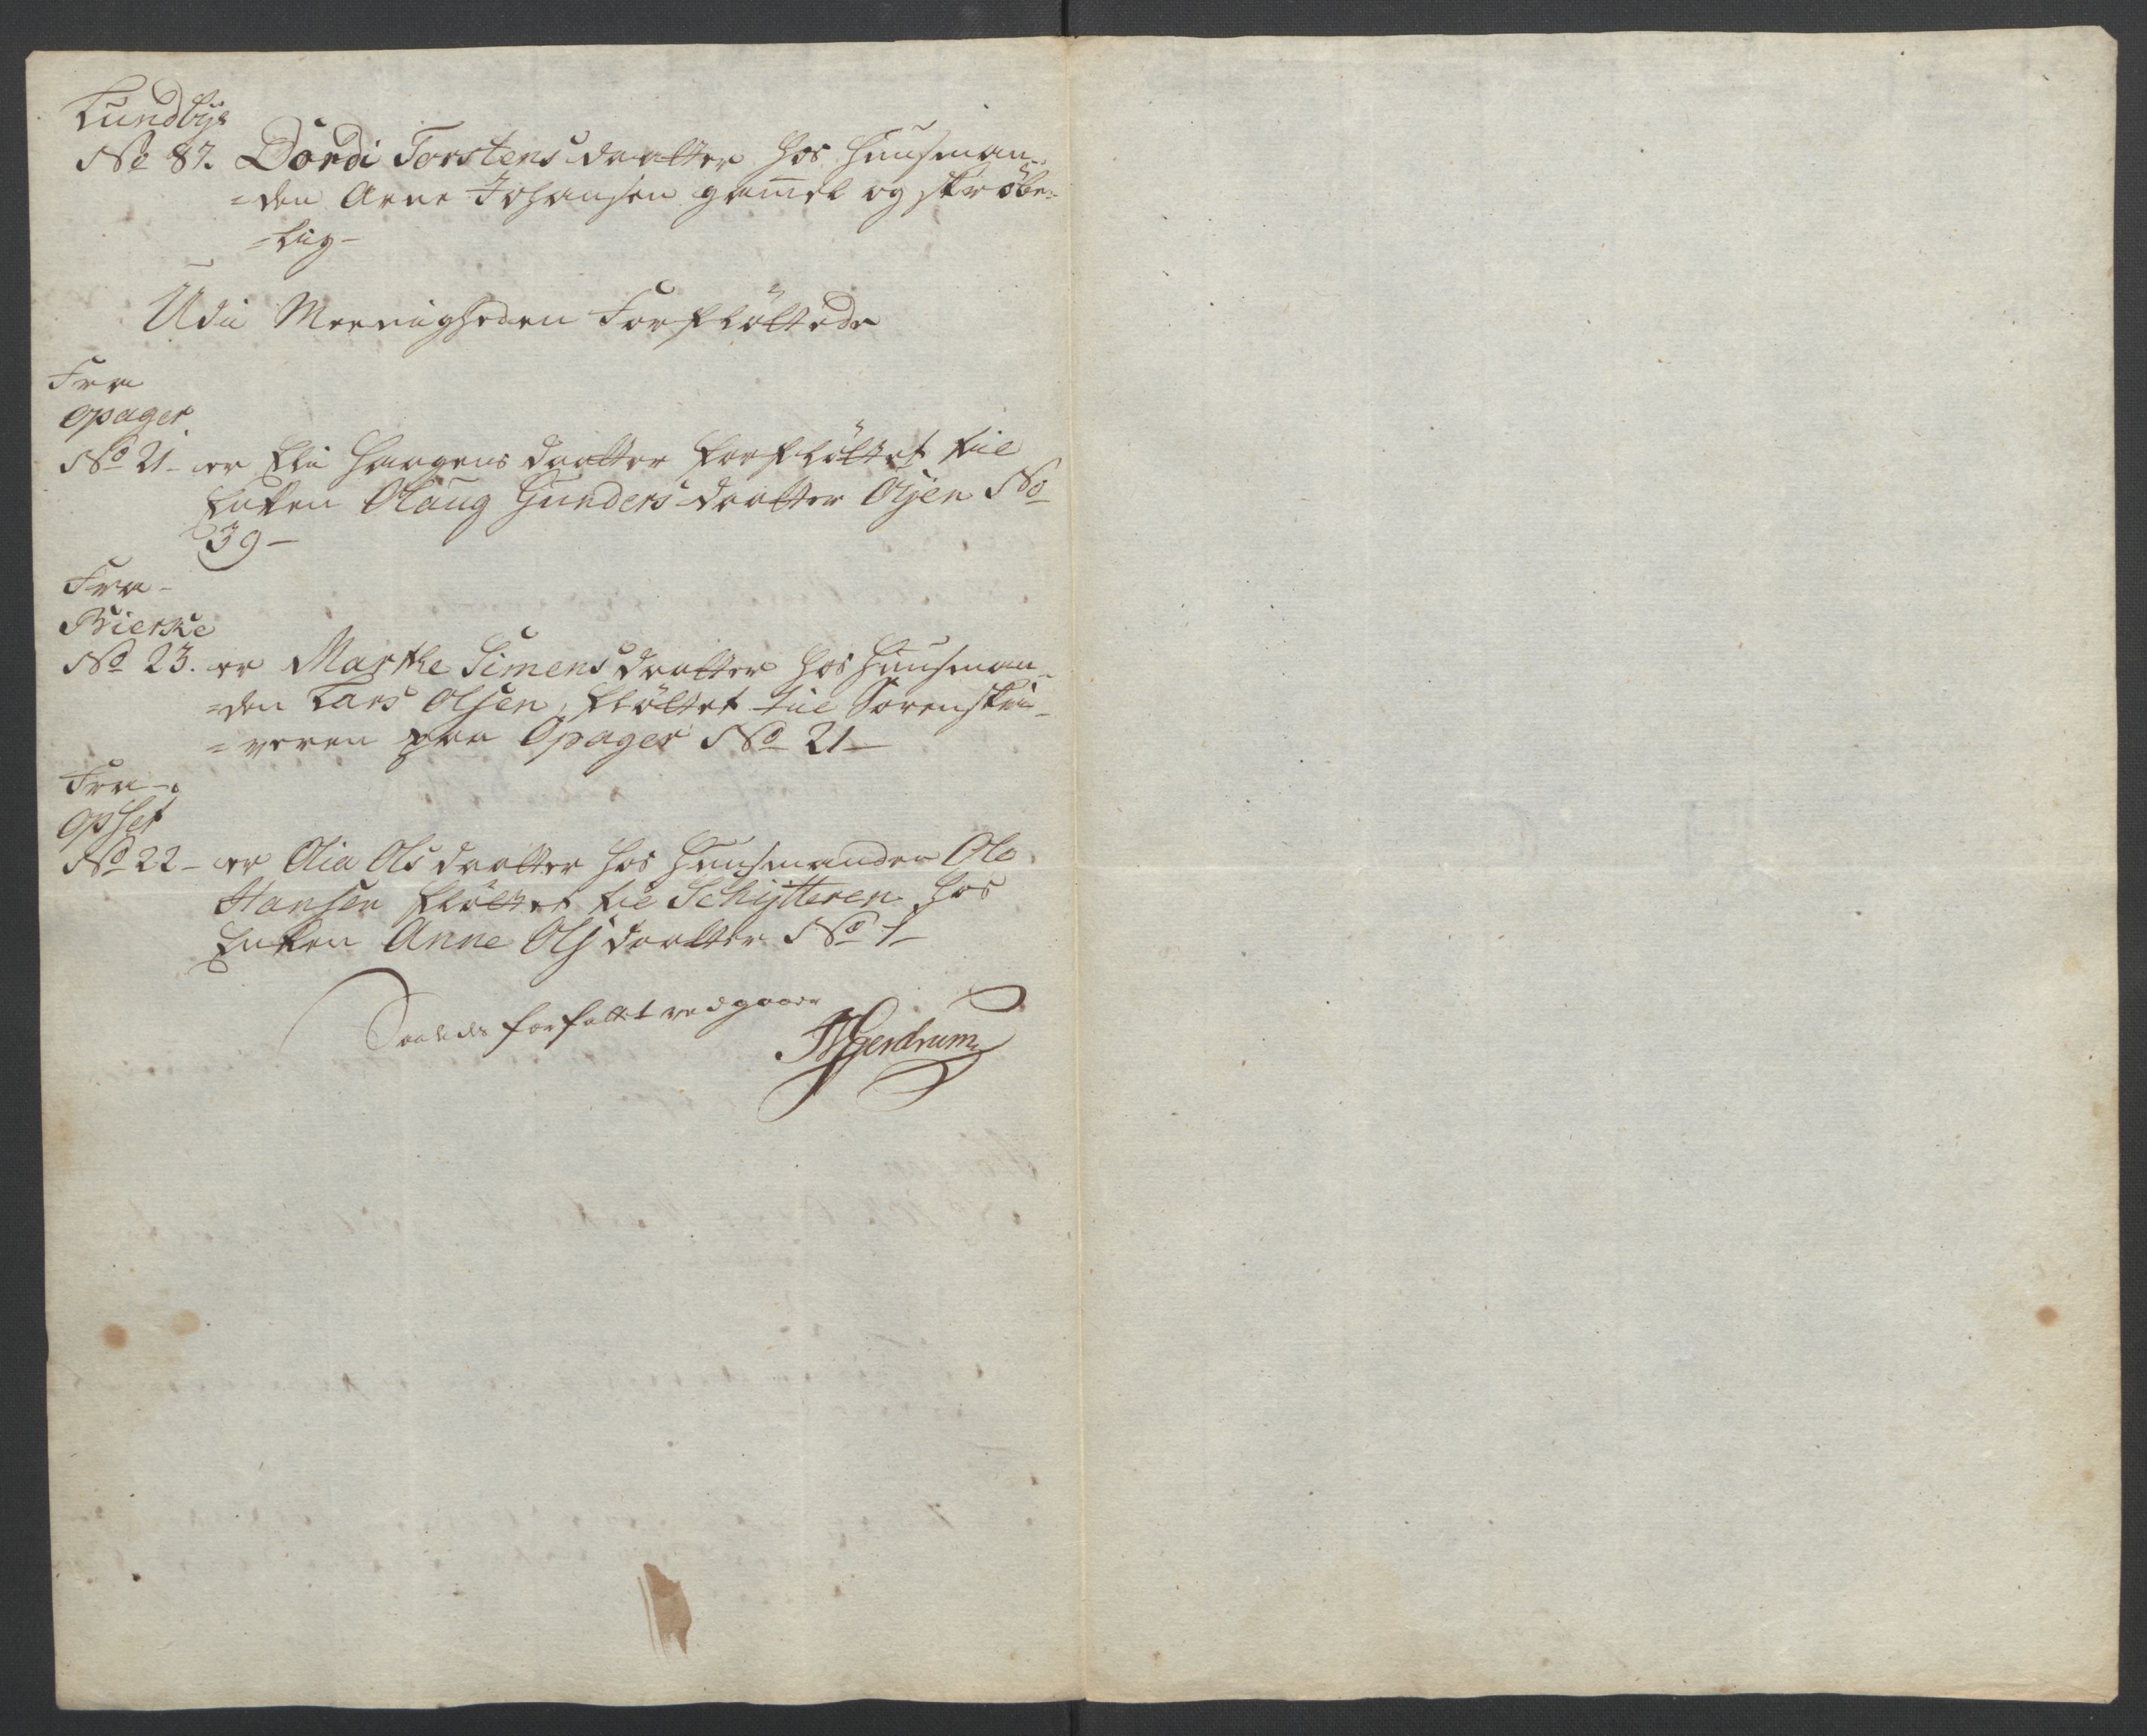 Lundbye
No 87. Dordi Torstensdaatter hos Huusman-
=den Arne Johansen gamel og skrøbe=
=lig-
Udi Meenigheden Forfløttede
Fra
Opager
No 21- er Eli Haagensdaatter forfløttet til
Enken Olaug Gundersdaatter Øysen No
39-
Fra-
Bierke
No 23. er Marthe Simensdaatter hos Huusman-
=den Lars Olsen, fløttet til Sorenskri-
=veren paa Opager No 21-
Fra-
Opset
No 22- er Olia Olsdaatter hos Huusmanden Ole
Hansen fløttet til Schytteren hos
Enken Anne Olsdaatter No 1-
Saaledes forfattet vedgaaer
Gjerdrum